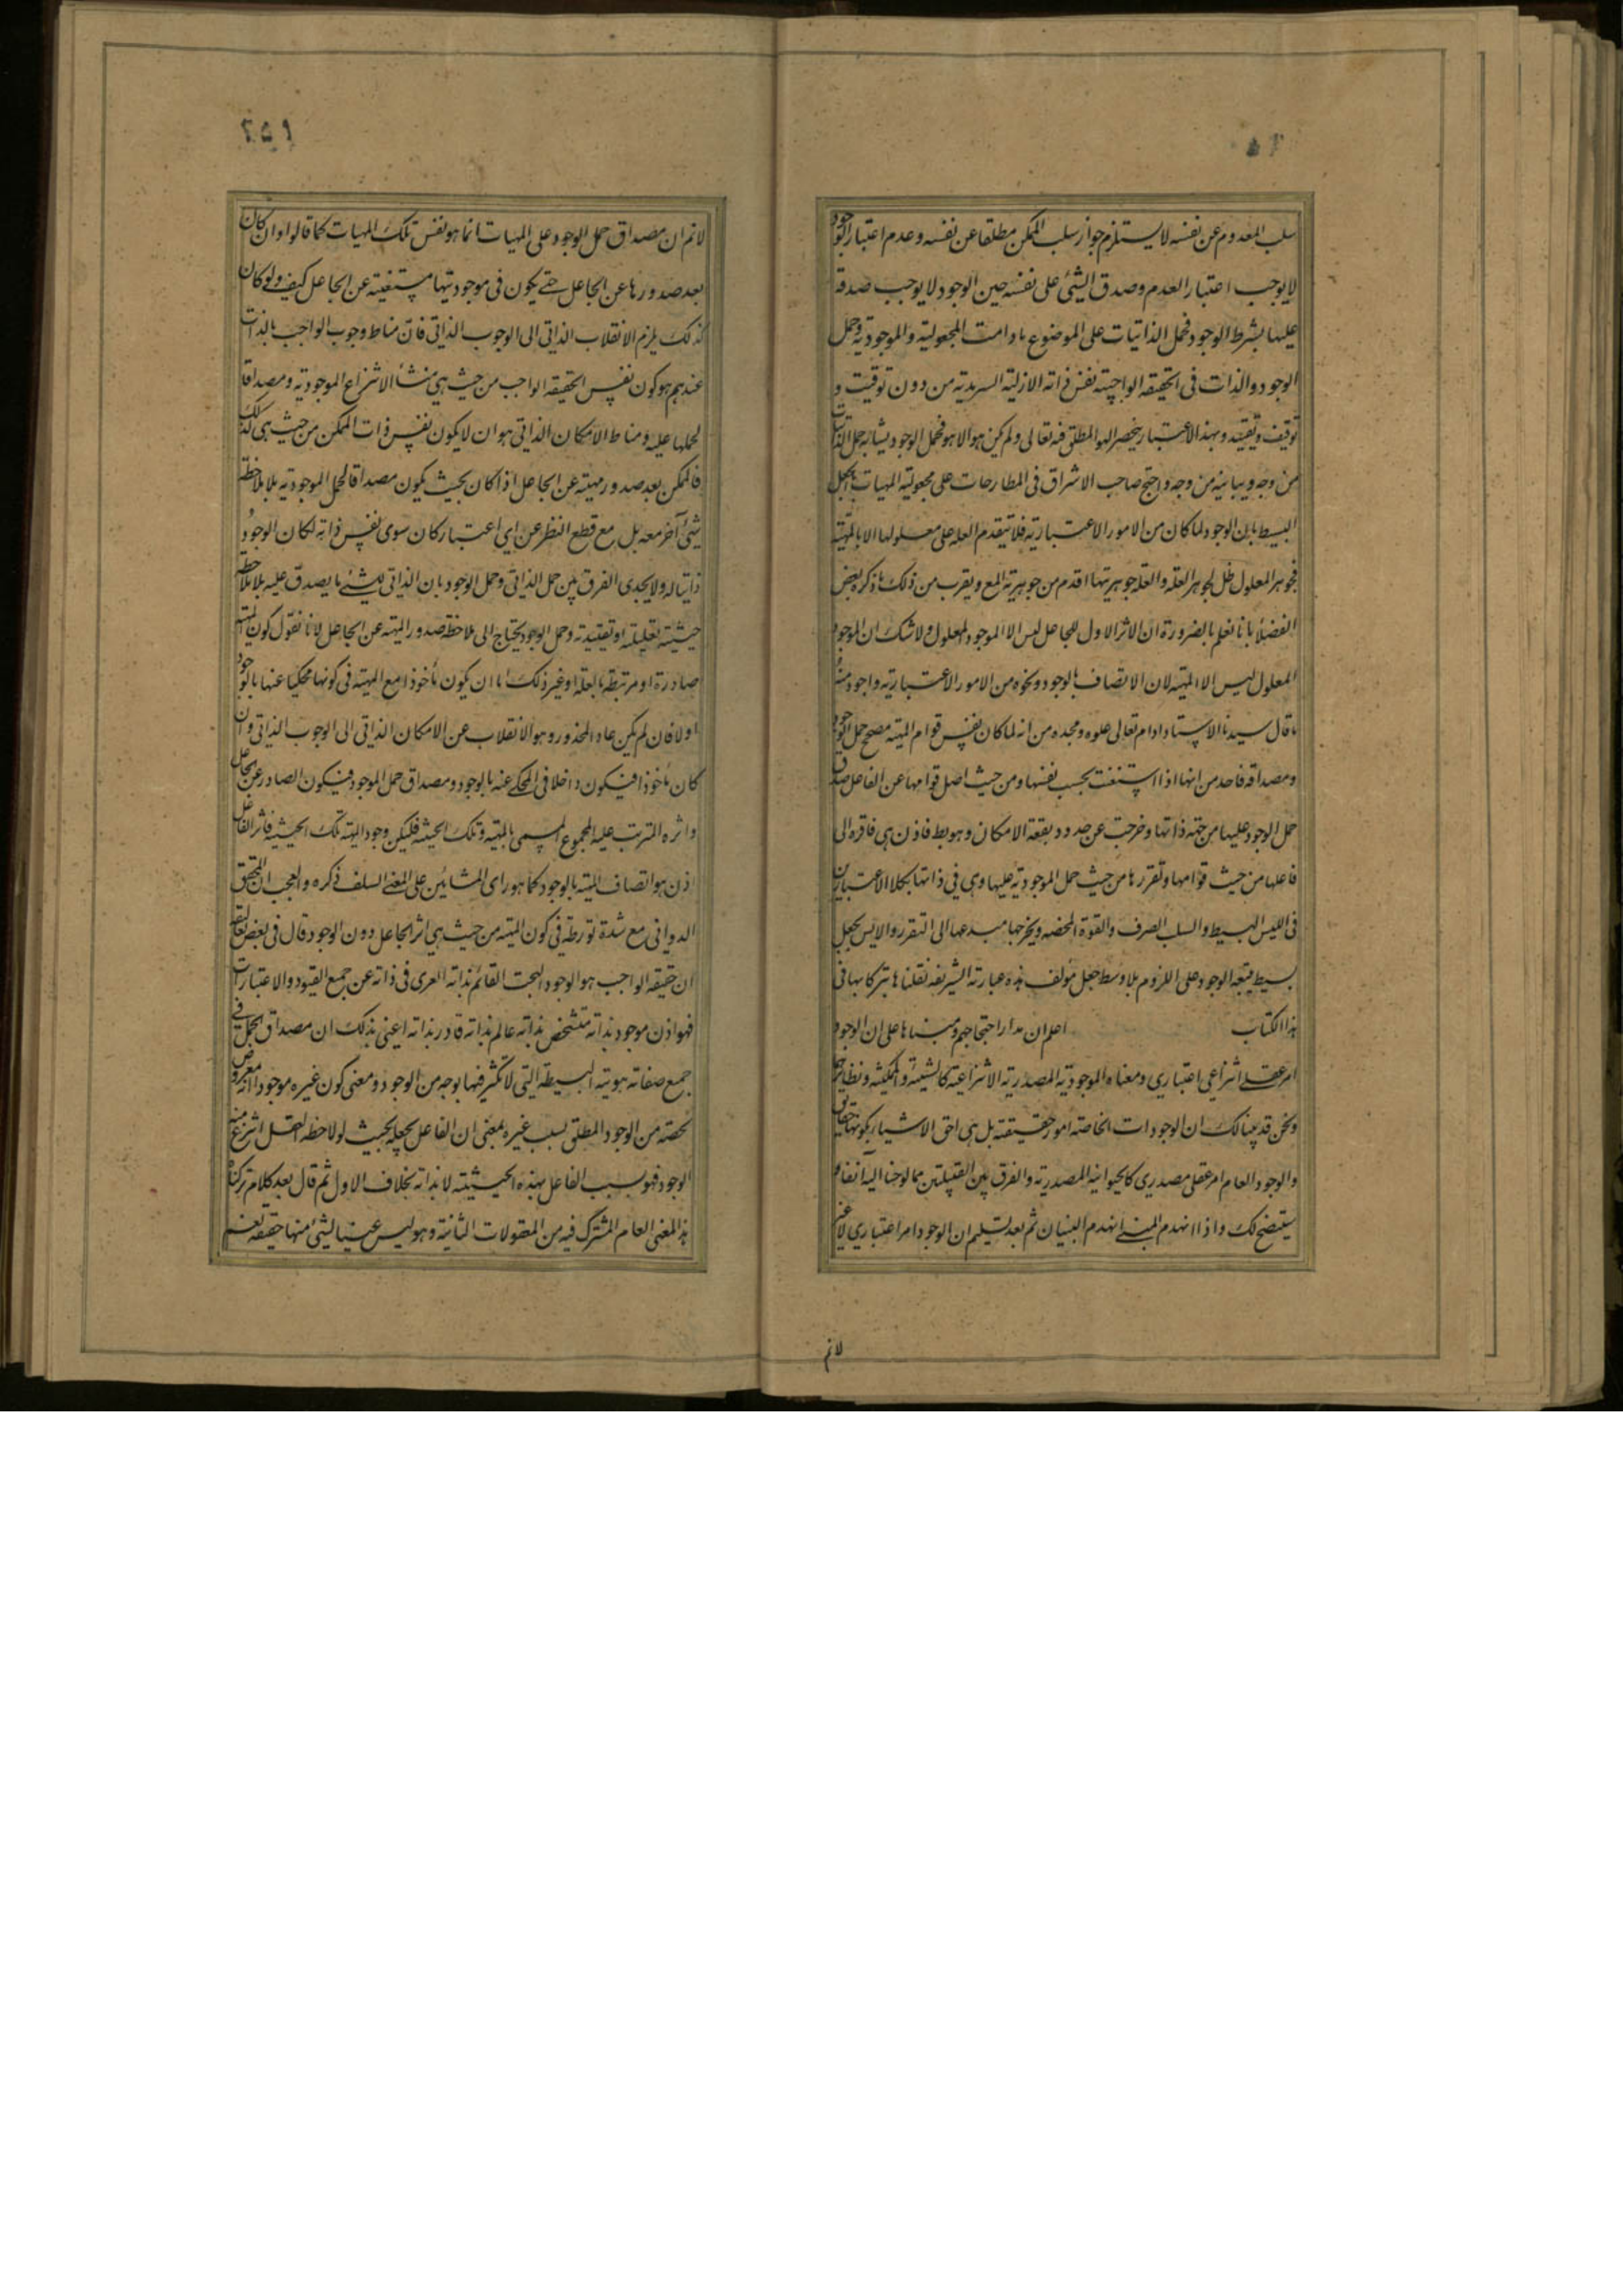 سلب المعدوم عن نفسه لا يستلزم جواز سلب الممكن مطلقا عن نفسه وعدم اعتبار الوجود
لا يوجب اعتبار العدم وصدق الشئ على نفسه حين الوجود لا يوجب صدقه
عليها بشرط الوجود فحمل الذاتيات على الموضوع مادامت المجعولية والموجودية وحمل
الوجود والذات فى الحقيقة الواجبية نفس ذاته الازلية السرمدية من دون توقيت و
توقيف وتقييد وبهذا الاعتبار ينحصر الهو المطلق فيه تعالى ولم يكن هو الا هو فحمل الوجود يشابه حمل الذات
من وجه ويباينه من وجه واحتج صاحب الاشراق فى المطارحات على مجعولية المهيات بالجعل
البسيط بان الوجود لما كان من الامور الاعتبارية فلا يتقدم العلة على معلولها الا بالمهية
فجوهر المعلول ظل لجوهر العلة والعلة جوهريتها اقدم من جوهرية المع ويقرب من ذلك ما ذكره بعض
الفضلا بانا نعلم بالضرورة ان الاثر الاول للجاعل ليس الا الموجود المعلول ولا شك ان الموجود
المعلول ليس الا المهية لان الاتصاف بالوجود ونحوه من الامور الاعتبارية واجود منه
ما قال سيدنا الاستاد ادام تعالى علوه ومجده من انه لما كان نفس قوام المهية مصحح حمل الوجود
ومصداقه فاحدس انها اذا استغنت بحسب نفسها ومن حيث اصل قوامها عن الفاعل صدق
حمل الوجود عليها من جهة ذاتها وخرجت عن حدود بقعة الامكان وهو بط فاذن هى فاقرة الى
فاعلها من حيث قوامها وتقررها من حيث حمل الموجودية عليها وهى فى ذاتها بكلا الاعتبارين
فى الليس البسيط والسلب الصرف والقوة المحضة ويخرجها مبدعها الى التقرر والايس بجعل
بسيط يتبعه الوجود على اللزوم بلا وسط جعل مؤلف هذه عبارته الشريفة نقلناها تبركا بها فى
هذا الكتاب اعلم ان مدار احتجاجهم ومبناها على ان الوجود
امر عقلى انتزاعى اعتبارى ومعناه الموجودية المصدرية الانتزاعية كالشيئية والممكنية ونظايرهما
ونحن قد بينا لك ان الوجودات الخاصة امور حقيقية بل هى احق الاشياء بكونها حقايق
والوجود العام امر عقلى مصدرى كالحيوانية المصدرية والفرق بين القبيلتين مما لوحنا اليه آنفا و
سيتضح لك واذا انهدم المبنى انهدم البنيان ثم بعد تسليم ان الوجود امر اعتبارى لا غير
لانم
لانم ان مصداق حمل الوجود على المهيات انما هو نفس تلك المهيات كما قالوا وان كان
بعد صدورها عن الجاعل حتى يكون فى موجوديتها مستغنية عن الجاعل كيف ولو كان
كذلك يلزم الانقلاب الذاتى الى الوجوب الذاتى فان مناط وجوب الواجب بالذات
عندهم هو كون نفس الحقيقة الواجب من حيث هى منشأ لانتزاع الموجودية ومصداقا
لحملها عليه ومناط الامكان الذاتى هو ان لا يكون نفس ذات الممكن من حيث هى كذلك
فالممكن بعد صدور مهيته عن الجاعل اذا كان بحيث يكون مصداقا لحمل الموجودية بلا ملاحظة
شئ آخر معه بل مع قطع النظر عن اى اعتبار كان سوى نفس ذاته لكان الوجود
ذاتيا له ولا يجدى الفرق بين حمل الذاتى وحمل الوجود بان الذاتى للشئ ما يصدق عليه بلا ملاحظة
حيثية تعليلية او تقييدية وحمل الوجود يحتاج الى ملاحظة صدور المهية عن الجاعل لانا نقول كون المهية
صادرة او مرتبطة بالعلة او غير ذلك اما ان يكون ماخوذا مع المهية فى كونها محكيا عنها بالوجود
اولا فان لم يكن عاد المحذور وهو الانقلاب عن الامكان الذاتى الى الوجوب الذاتى وان
كان ماخوذا فيكون داخلا فى المحكى عنه بالوجود ومصداق حمل الموجود فيكون الصادر عن الجاعل
واثره المترتب عليه المجموع المسمى بالمهية وتلك الحيثية فليكن وجود المهية تلك الحيثية فاثر الفاعل
اذن هو اتصاف المهية بالوجود كما هو راى المشائين على المعنى السلف ذكره والعجب ان المحقق
الدوانى مع شدة تورطه فى كون المهية من حيث هى اثر الجاعل دون الوجود قال فى بعض تعاليقه
ان حقيقة الواجب هو الوجود البحت القائم بذاته العرى فى ذاته عن جميع القيود والاعتبارات
فهو اذن موجود بذاته متشخص بذاته عالم بذاته قادر بذاته اعنى بذلك ان مصداق الحمل فى
جميع صفاته هويته البسيطة التى لا تكثر فيها بوجه من الوجوه ومعنى كون غيره موجودا انه معروض
لحصة من الوجود المطلق بسبب غيره بمعنى ان الفاعل يجعله بحيث لو لاحظه العقل انتزع منه
الوجود فهو بسبب الفاعل بهذه الحيثية لا بذاته بخلاف الاول ثم قال بعد كلام تركناه
هذا المعنى العام المشترك فيه من المعقولات الثانية وهو ليس عينا لشئ منها حقيقة نعم